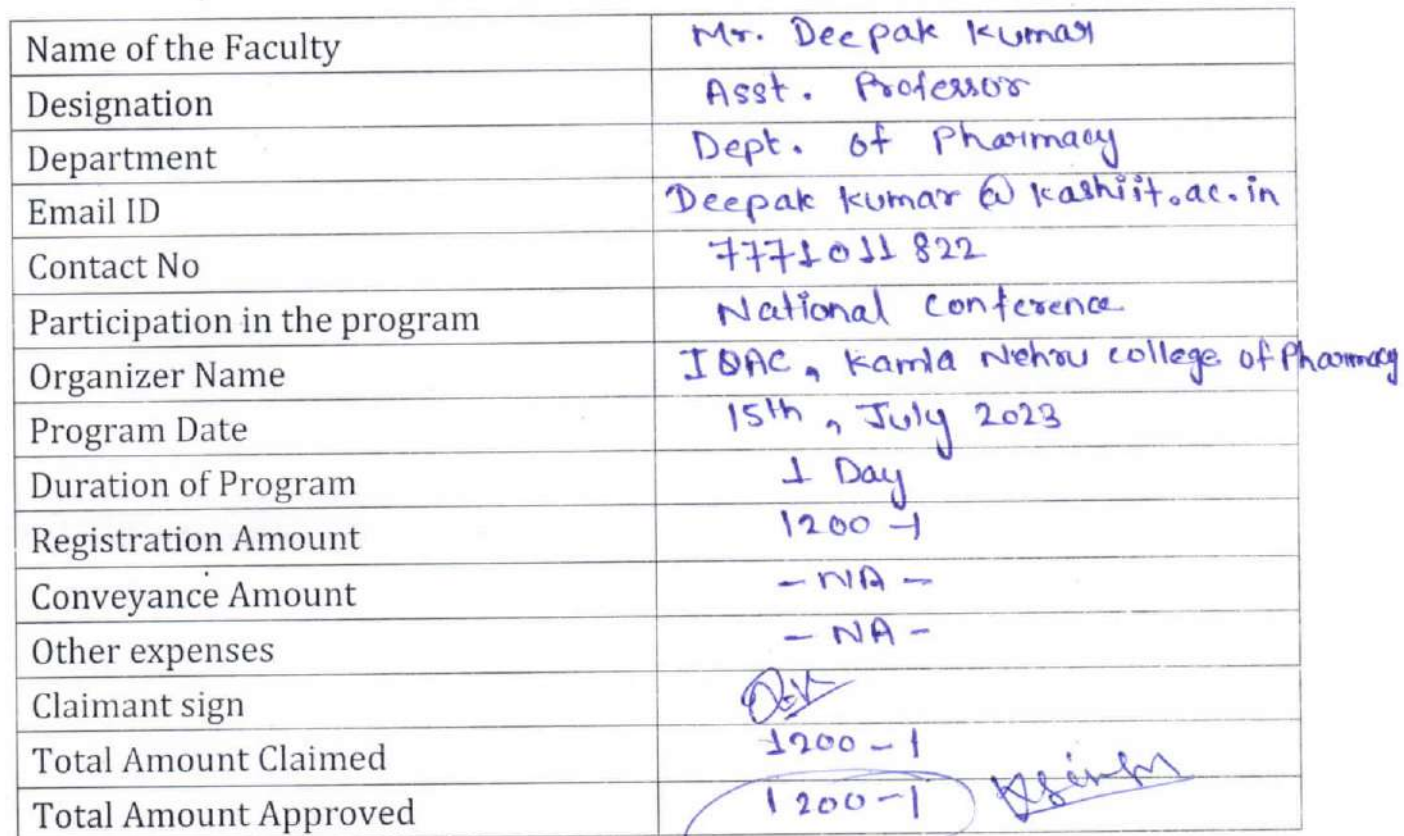 Name of the Faculty Mr. Deepak Kumar
Designation Asst. Professor
Department Dept. of Pharmacy
Email ID Deepak kumar @ kashiit.ac.in
Contact No 7771011822
Participation in the program National Conference
Organizer Name IQAC, Kamla Nehru college of Pharmacy
Program Date 15th, July 2023
Duration of Program 1 Day
Registration Amount 1200-/
Conveyance Amount - NA -
Other expenses - NA -
Claimant sign
Total Amount Claimed 1200-/
Total Amount Approved 1200-/